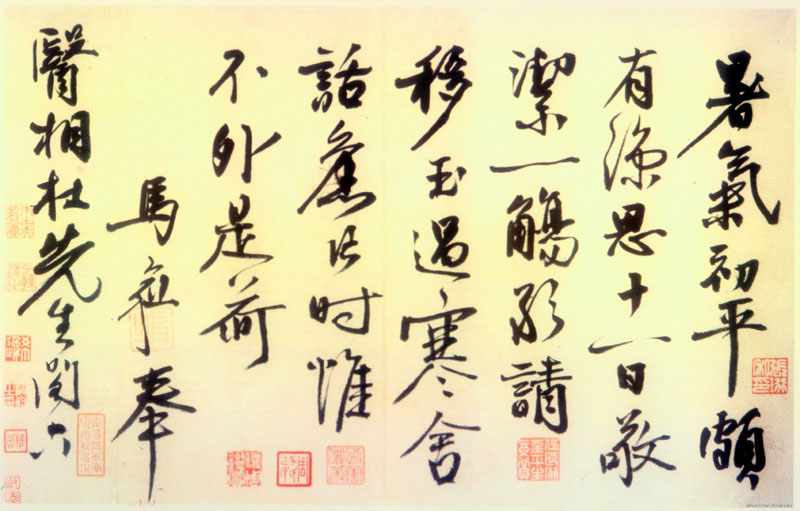 暑氣初平頗
有涼思十一日敬
潔一觴請
移玉過寒舍
話舊片時惟
不外是荷
馬愈奉
醫相杜先生閣下